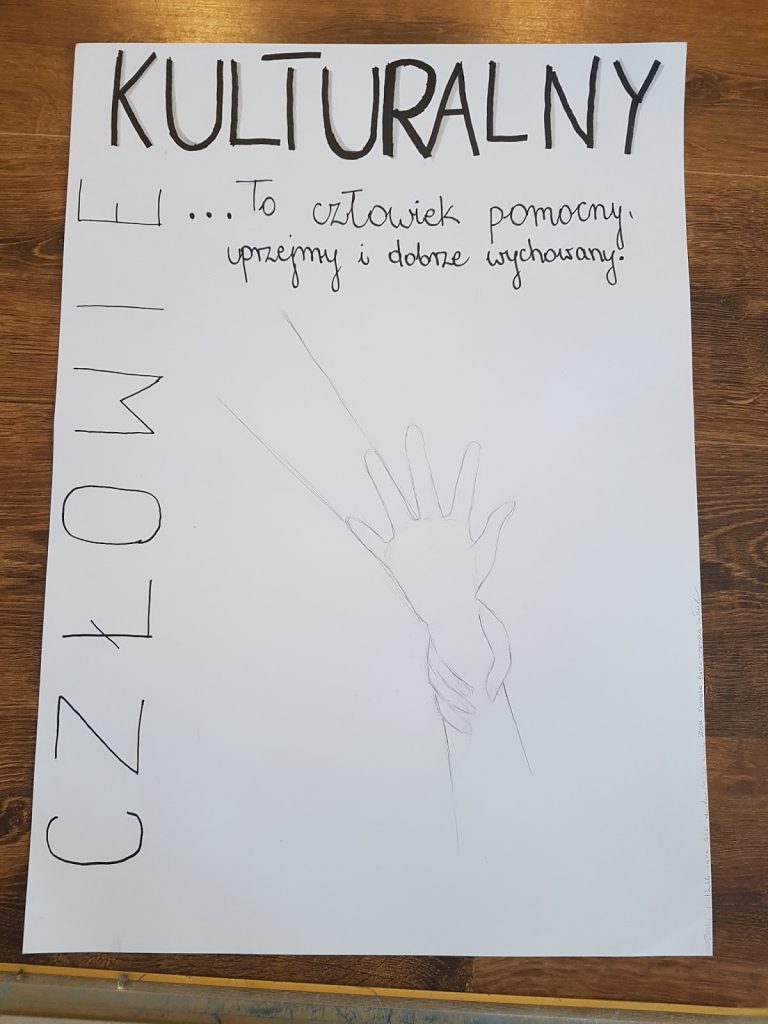 KULTURALNY
CZŁOWIE
...To człowiek pomocny,
uprzejmy i dobrze wychowany.